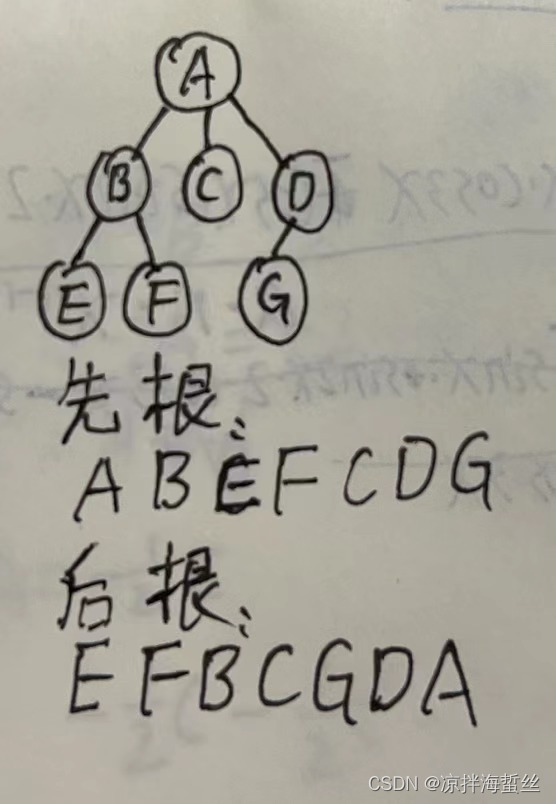 A
B C D
E F G
先根:
A B E F C D G
后根:
E F B C G D A
CSDN @凉拌海蜇丝